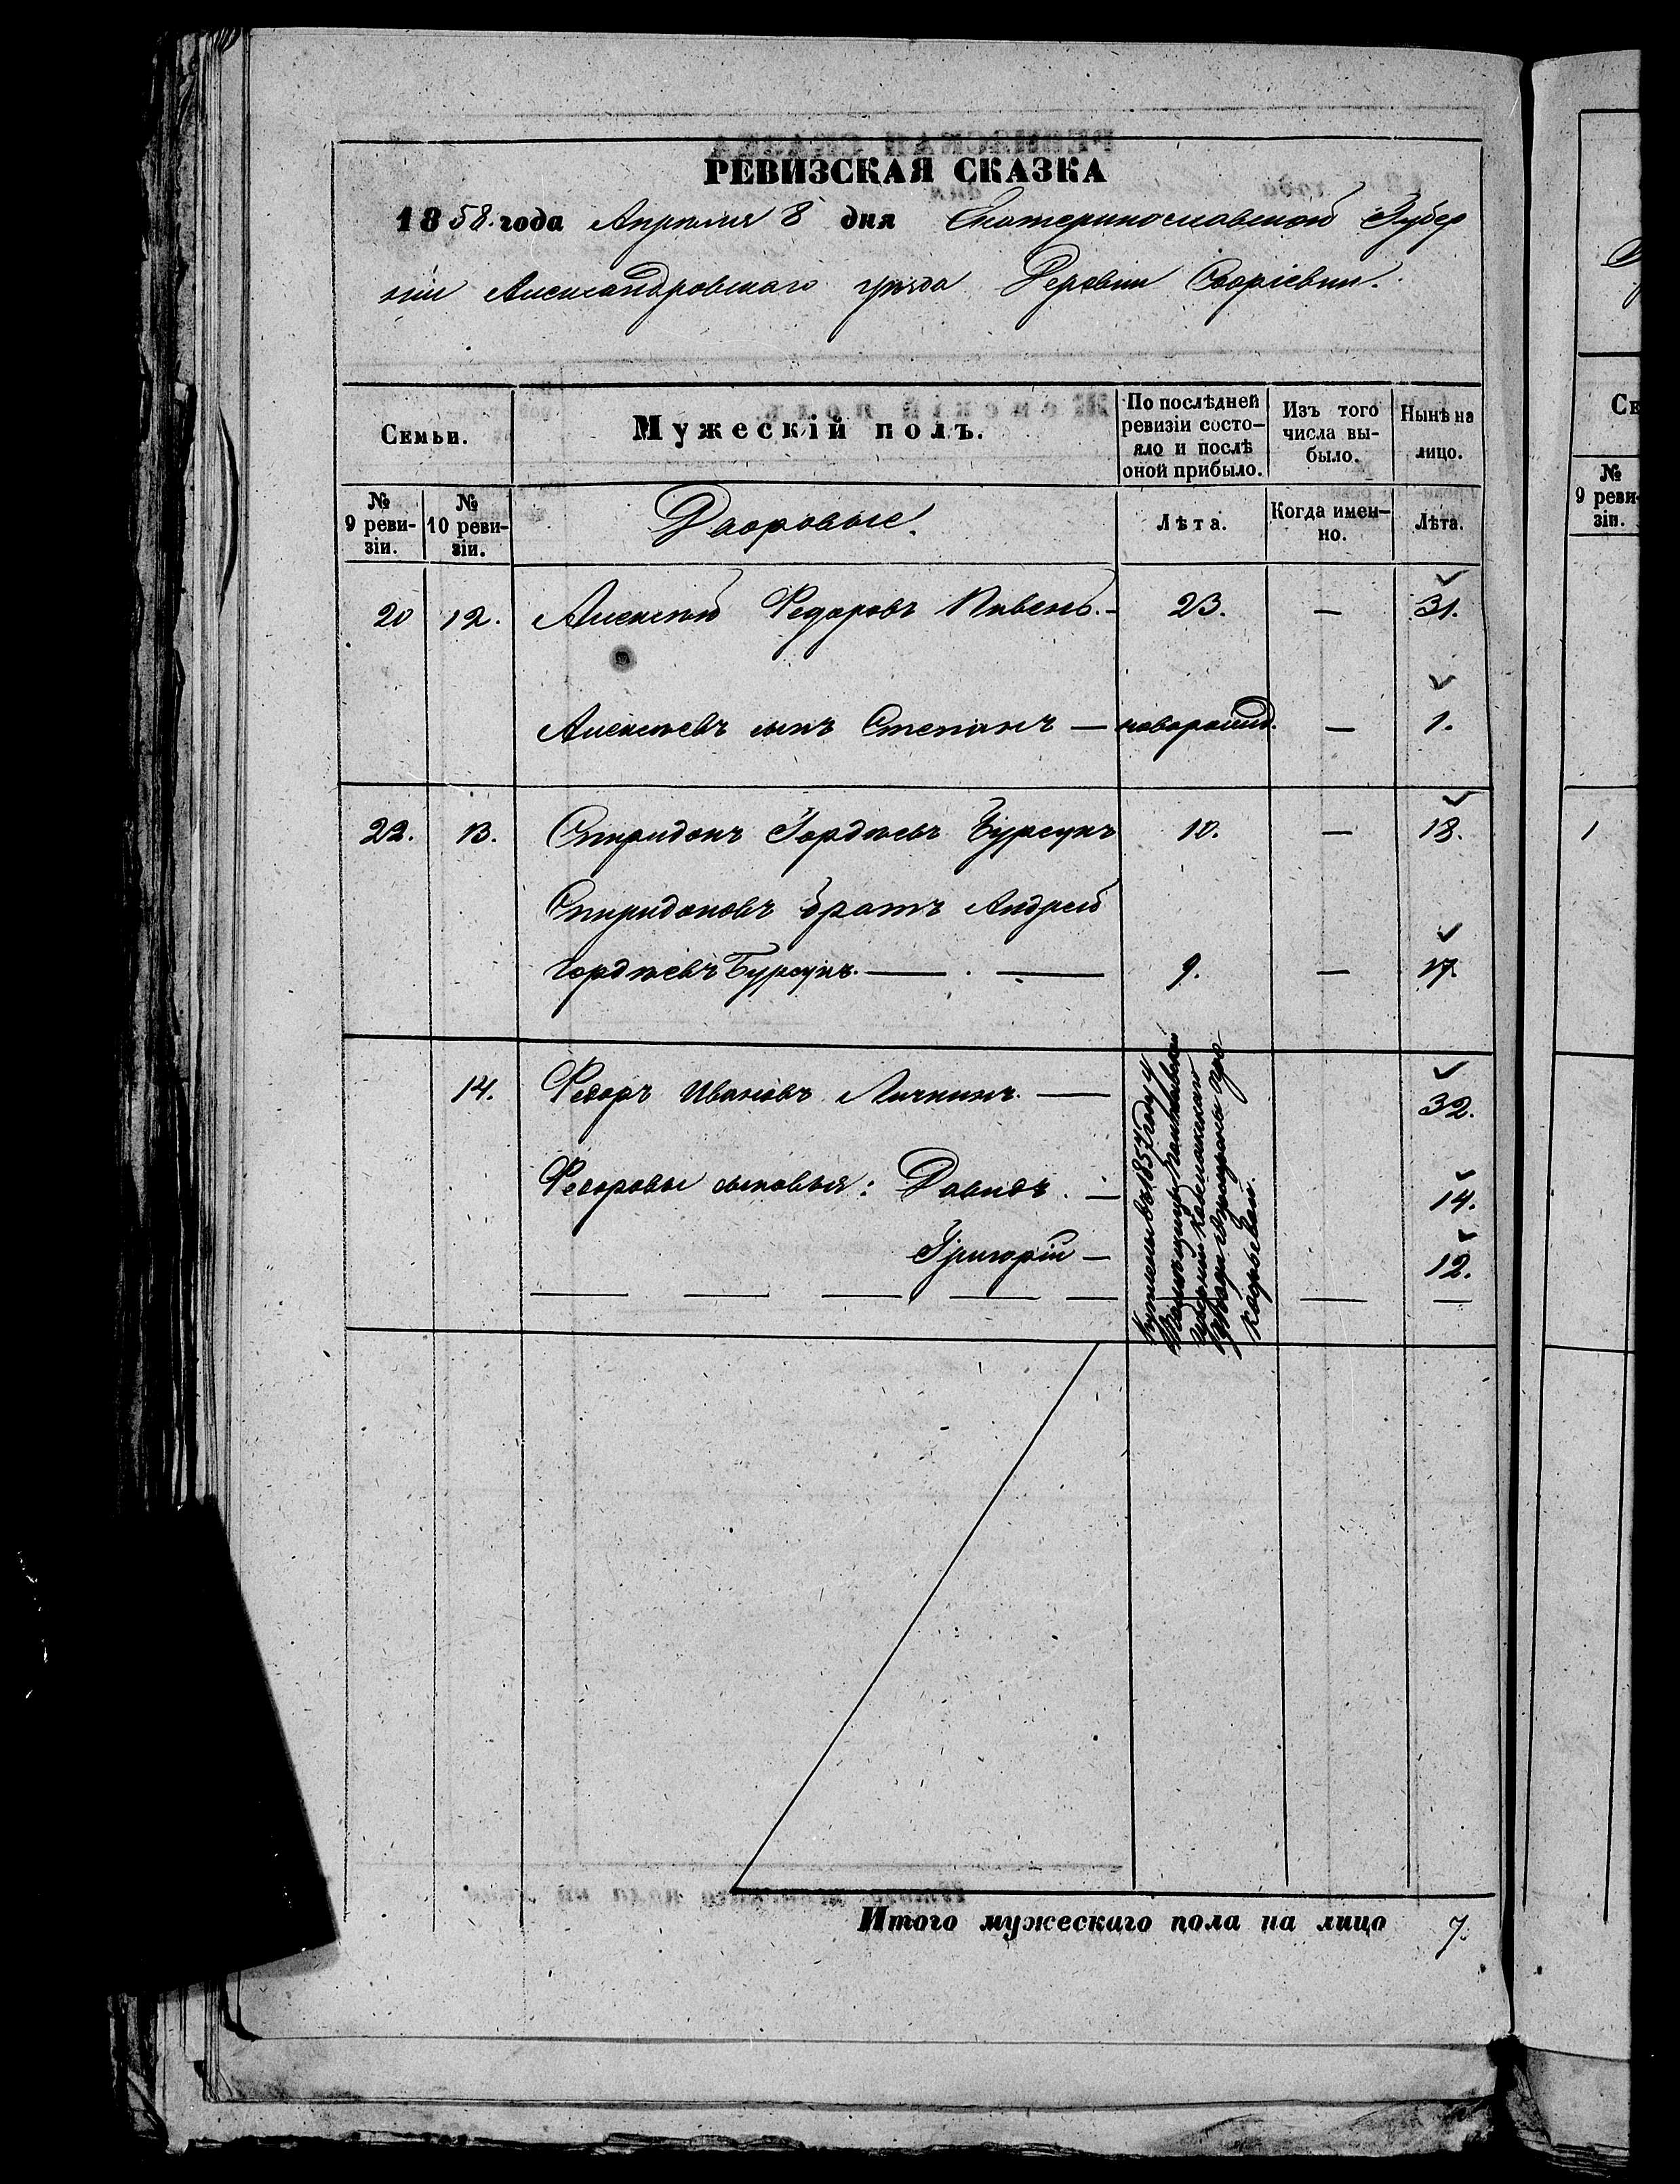 РЕВИЗСКАЯ СКАЗКА
1858. года Апреля 8 дня Екатеринославской Губер
ніи Александровскаго уѣзда Деревни
Семьи.
Мужескій полъ.
По послѣдней ревизіи состо-
яло и послѣ оной прибыло.
Изъ того числа вы-
было.
Нынѣ на лицо.
№ 9 реви-
зіи.
№ 10 реви-
зіи.
Дворовые.
Лѣта.
Когда имен-
но.
Лѣта.
20 12. Алексѣй Федоровъ Пивень. - 23. — 31.
Алексѣевъ сынъ Степанъ — новорожд. — 1.
22. 13. Спиридонъ Гордѣевъ Бурсукъ 10. — 18.
Спиридоновъ братъ Андрей
Гордѣевъ Бурсукъ. — . — 9. — 17.
14. Федоръ Ивановъ Личкинъ. — 32.
Федоровы сыновья: Давидъ. — 14.
Григорій — 12.
Куплены въ 1857 году у
Помѣщицы
Итого мужескаго пола на лицо 7.
Се
№ 9 реви-
зіи.
1